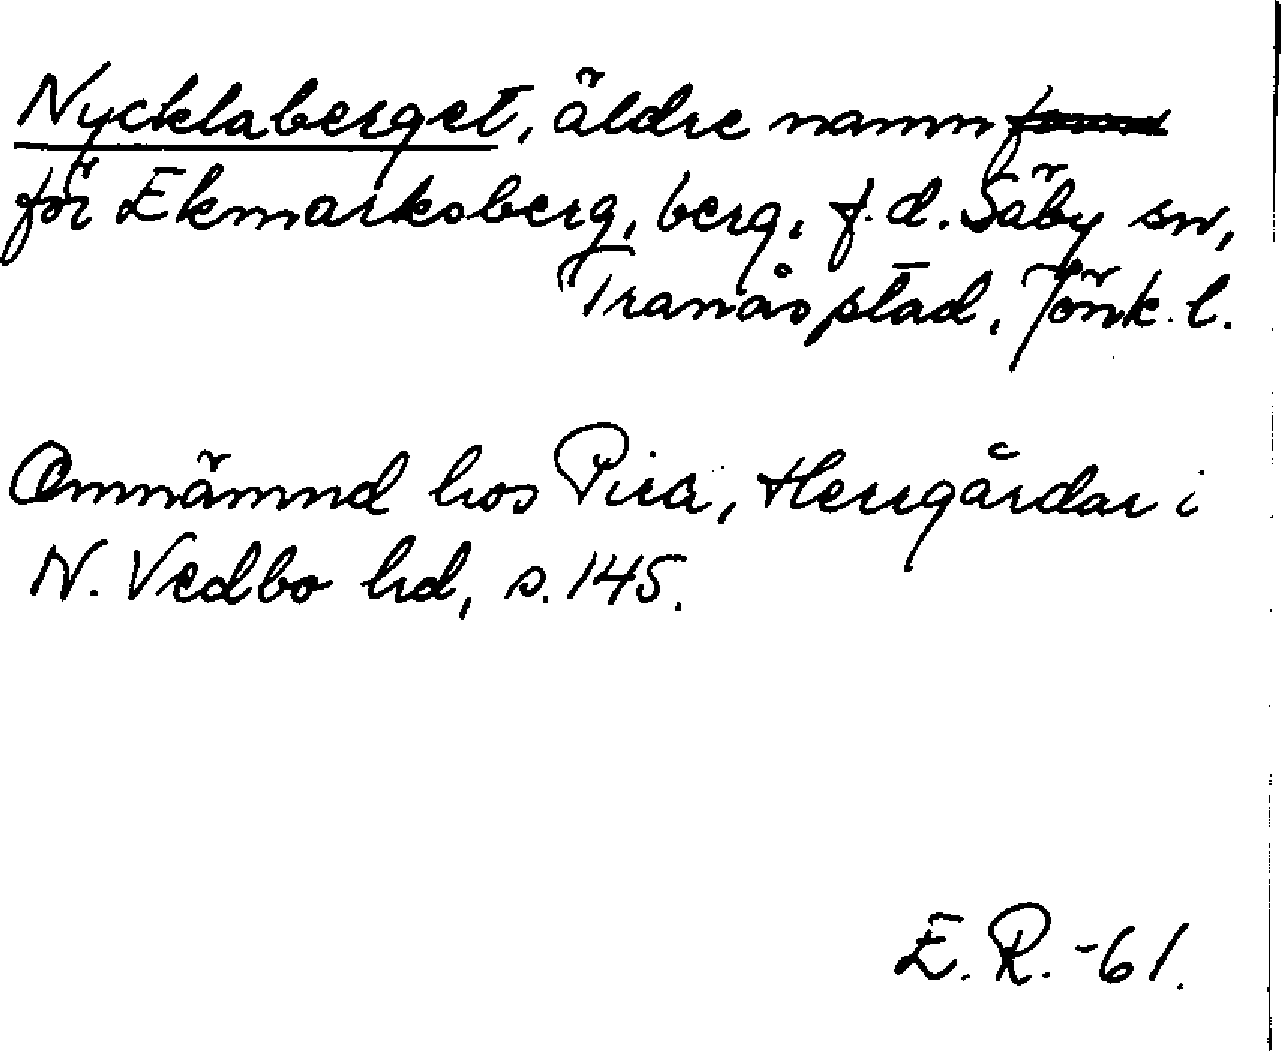 Nycklaberget, äldre namn
för Ekmarksberg, berg, f.d. Säby sn,
Tranås stad, Jönk. l.
Omnämnd hos Pira, Herrgårdar i
N. Vedbo hd, s. 145.
E. R. -61.